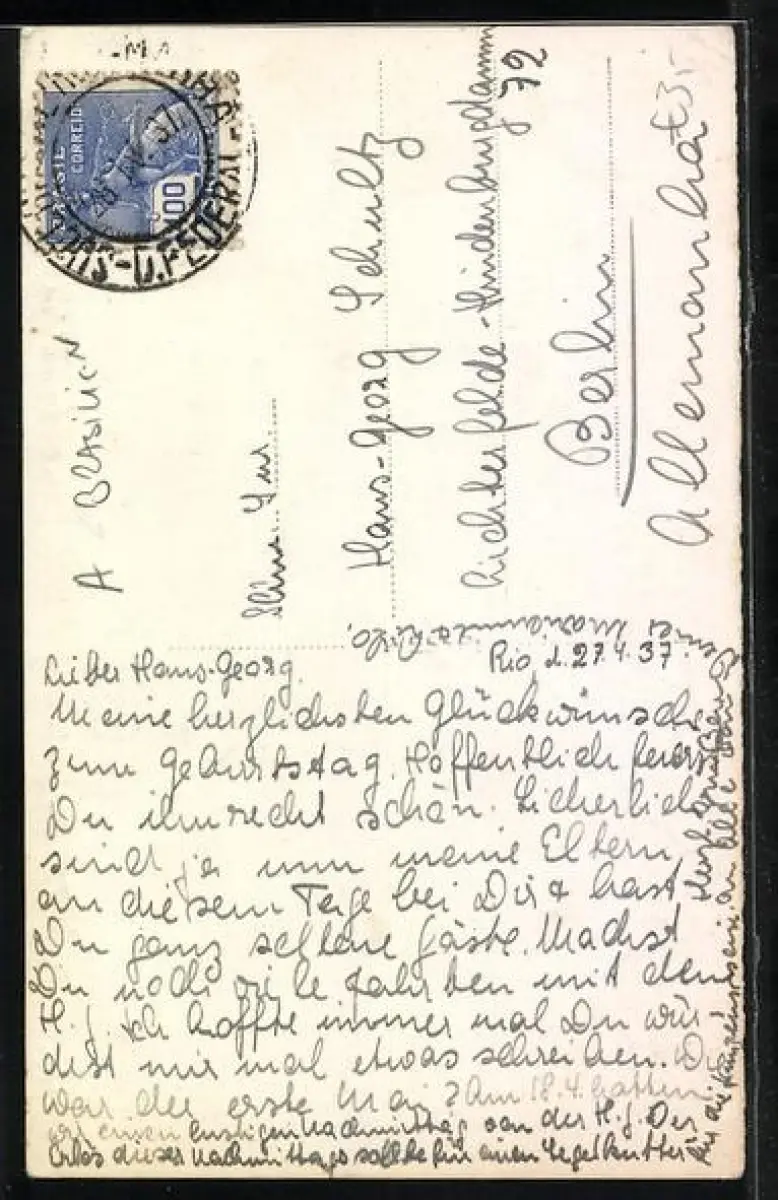 BRASIL
CORREIO
D. FEDERAL
A BRASILIEN
Hans-Georg Schultz
Lichterfelde-Hindenburgdamm
72
Berlin
Allemanha
Rio, d. 27.4.37.
Lieber Hans-Georg.
Meine herzlichsten Glückwünsche
zum Geburtstag. Hoffentlich feierst
Du ihn recht schön. Sicherlich
sind ja nun meine Eltern
an diesem Tage bei Dir & hast
Du ganz seltene Gäste. Machst
Du noch viele Fahrten mit dem
H.J. Ich hoffte immer mal Du wür
dest mir mal etwas schreiben. Wie
war der erste Mai? Am 18.4. hatten
wir einen lustigen Nachmittag von der H.J. Der
Erlös dieses Nachmittags sollte für einen Segelkutter